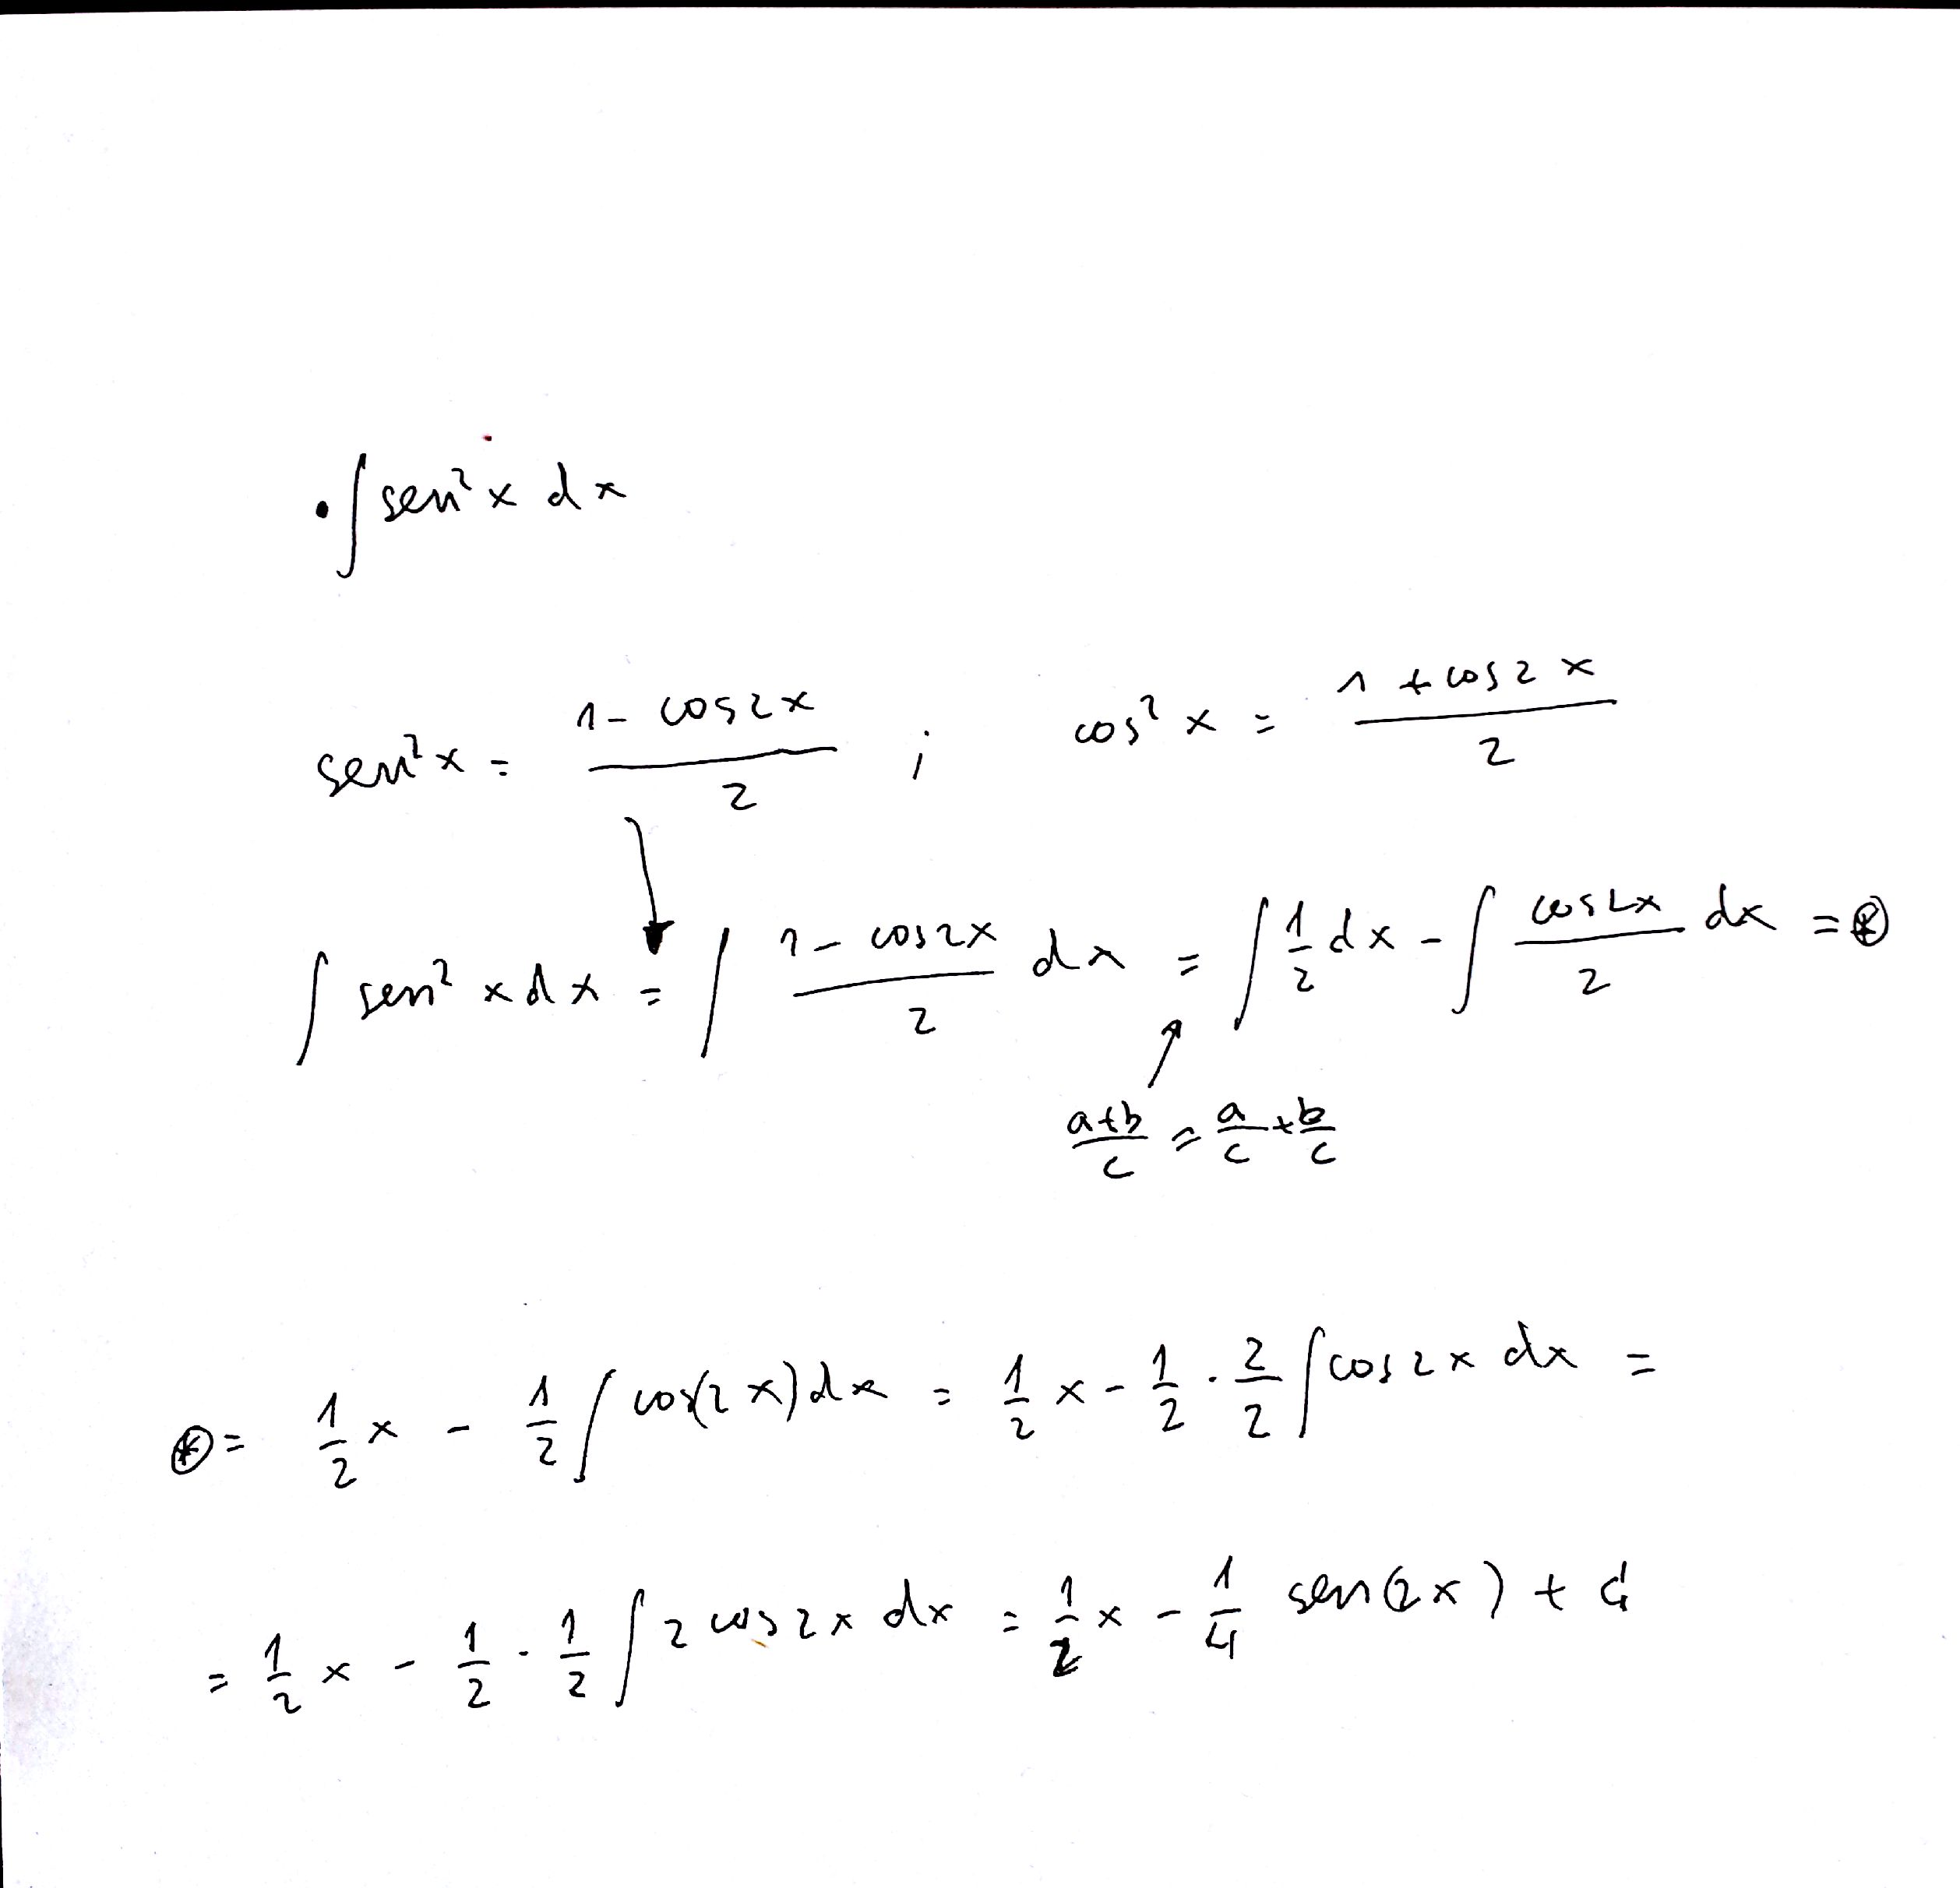 • ∫ sen²x dx
sen²x = (1 - cos2x)/2 ; cos²x = (1 + cos2x)/2
∫ sen²x dx = ∫ (1 - cos2x)/2 dx = ∫ 1/2 dx - ∫ (cos2x)/2 dx = ⊛
(a+b)/c = a/c + b/c
⊛ = 1/2 x - 1/2 ∫ cos(2x) dx = 1/2 x - 1/2 · 2/2 ∫ cos2x dx =
= 1/2 x - 1/2 · 1/2 ∫ 2 cos2x dx = 1/2 x - 1/4 sen(2x) + C